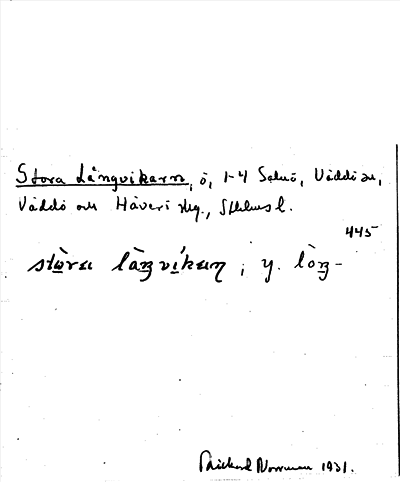 Stora Långvikarn, ö, 1-4 Senö, Väddö sn,
Väddö och Häverö skg., Sthlms l.
445
stòra làŋvíkan, y. lòŋ-
Rickard Norrman 1931.